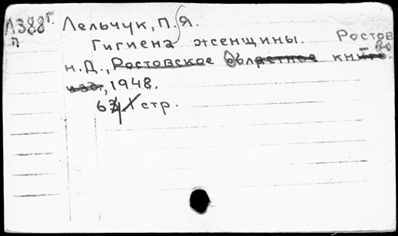 Л388г. Лельчук, П. Я.
п Гигиена женщины. Ростов
н.Д., Ростовское областное кн-во
изд., 1948.
64 стр.